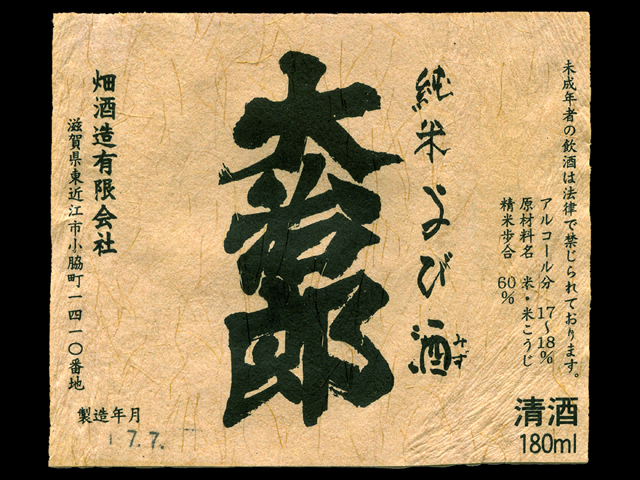 未成年者の飲酒は法律で禁じられております。
アルコール分 17～18%
原材料名 米・米こうじ
精米歩合 60%
清酒
180ml
純米 よび酒
みず
大治郎
畑酒造有限会社
滋賀県東近江市小脇町一四一〇番地
製造年月
7.7.